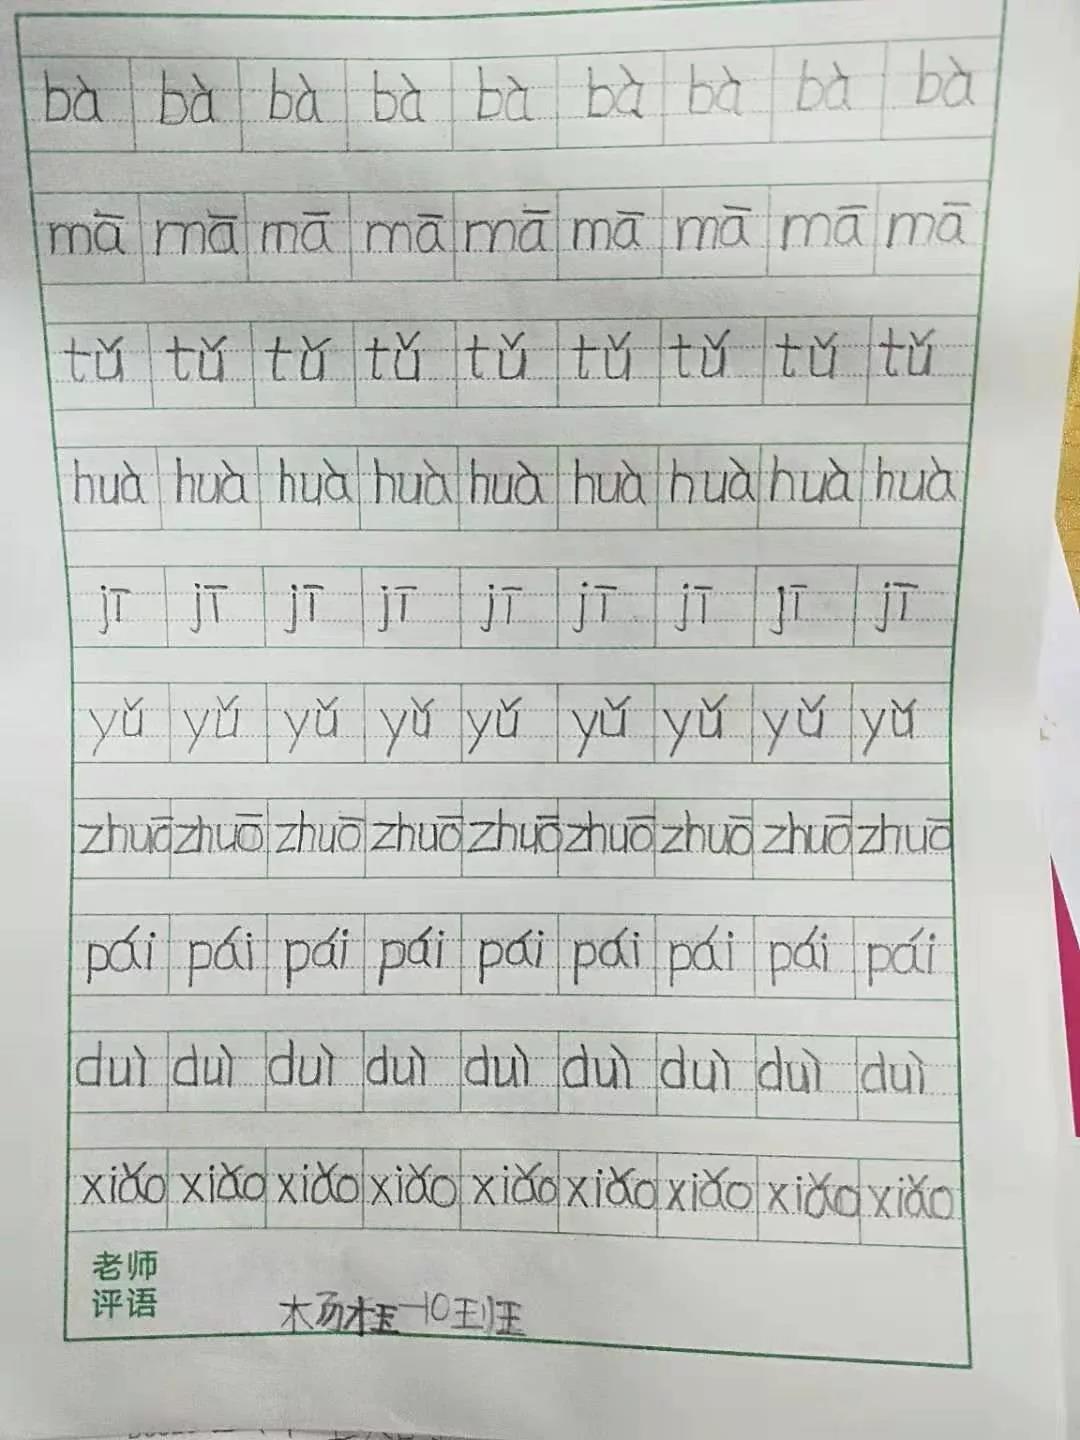 bà bà bà bà bà bà bà bà bà
mā mā mā mā mā mā mā mā mā
tǔ tǔ tǔ tǔ tǔ tǔ tǔ tǔ tǔ
huà huà huà huà huà huà huà huà huà
jī jī jī jī jī jī jī jī jī
yǔ yǔ yǔ yǔ yǔ yǔ yǔ yǔ yǔ
zhuō zhuō zhuō zhuō zhuō zhuō zhuō zhuō zhuō
pái pái pái pái pái pái pái pái pái
duì duì duì duì duì duì duì duì duì
xiǎo xiǎo xiǎo xiǎo xiǎo xiǎo xiǎo xiǎo xiǎo
老师
评语
杨钰 一10班